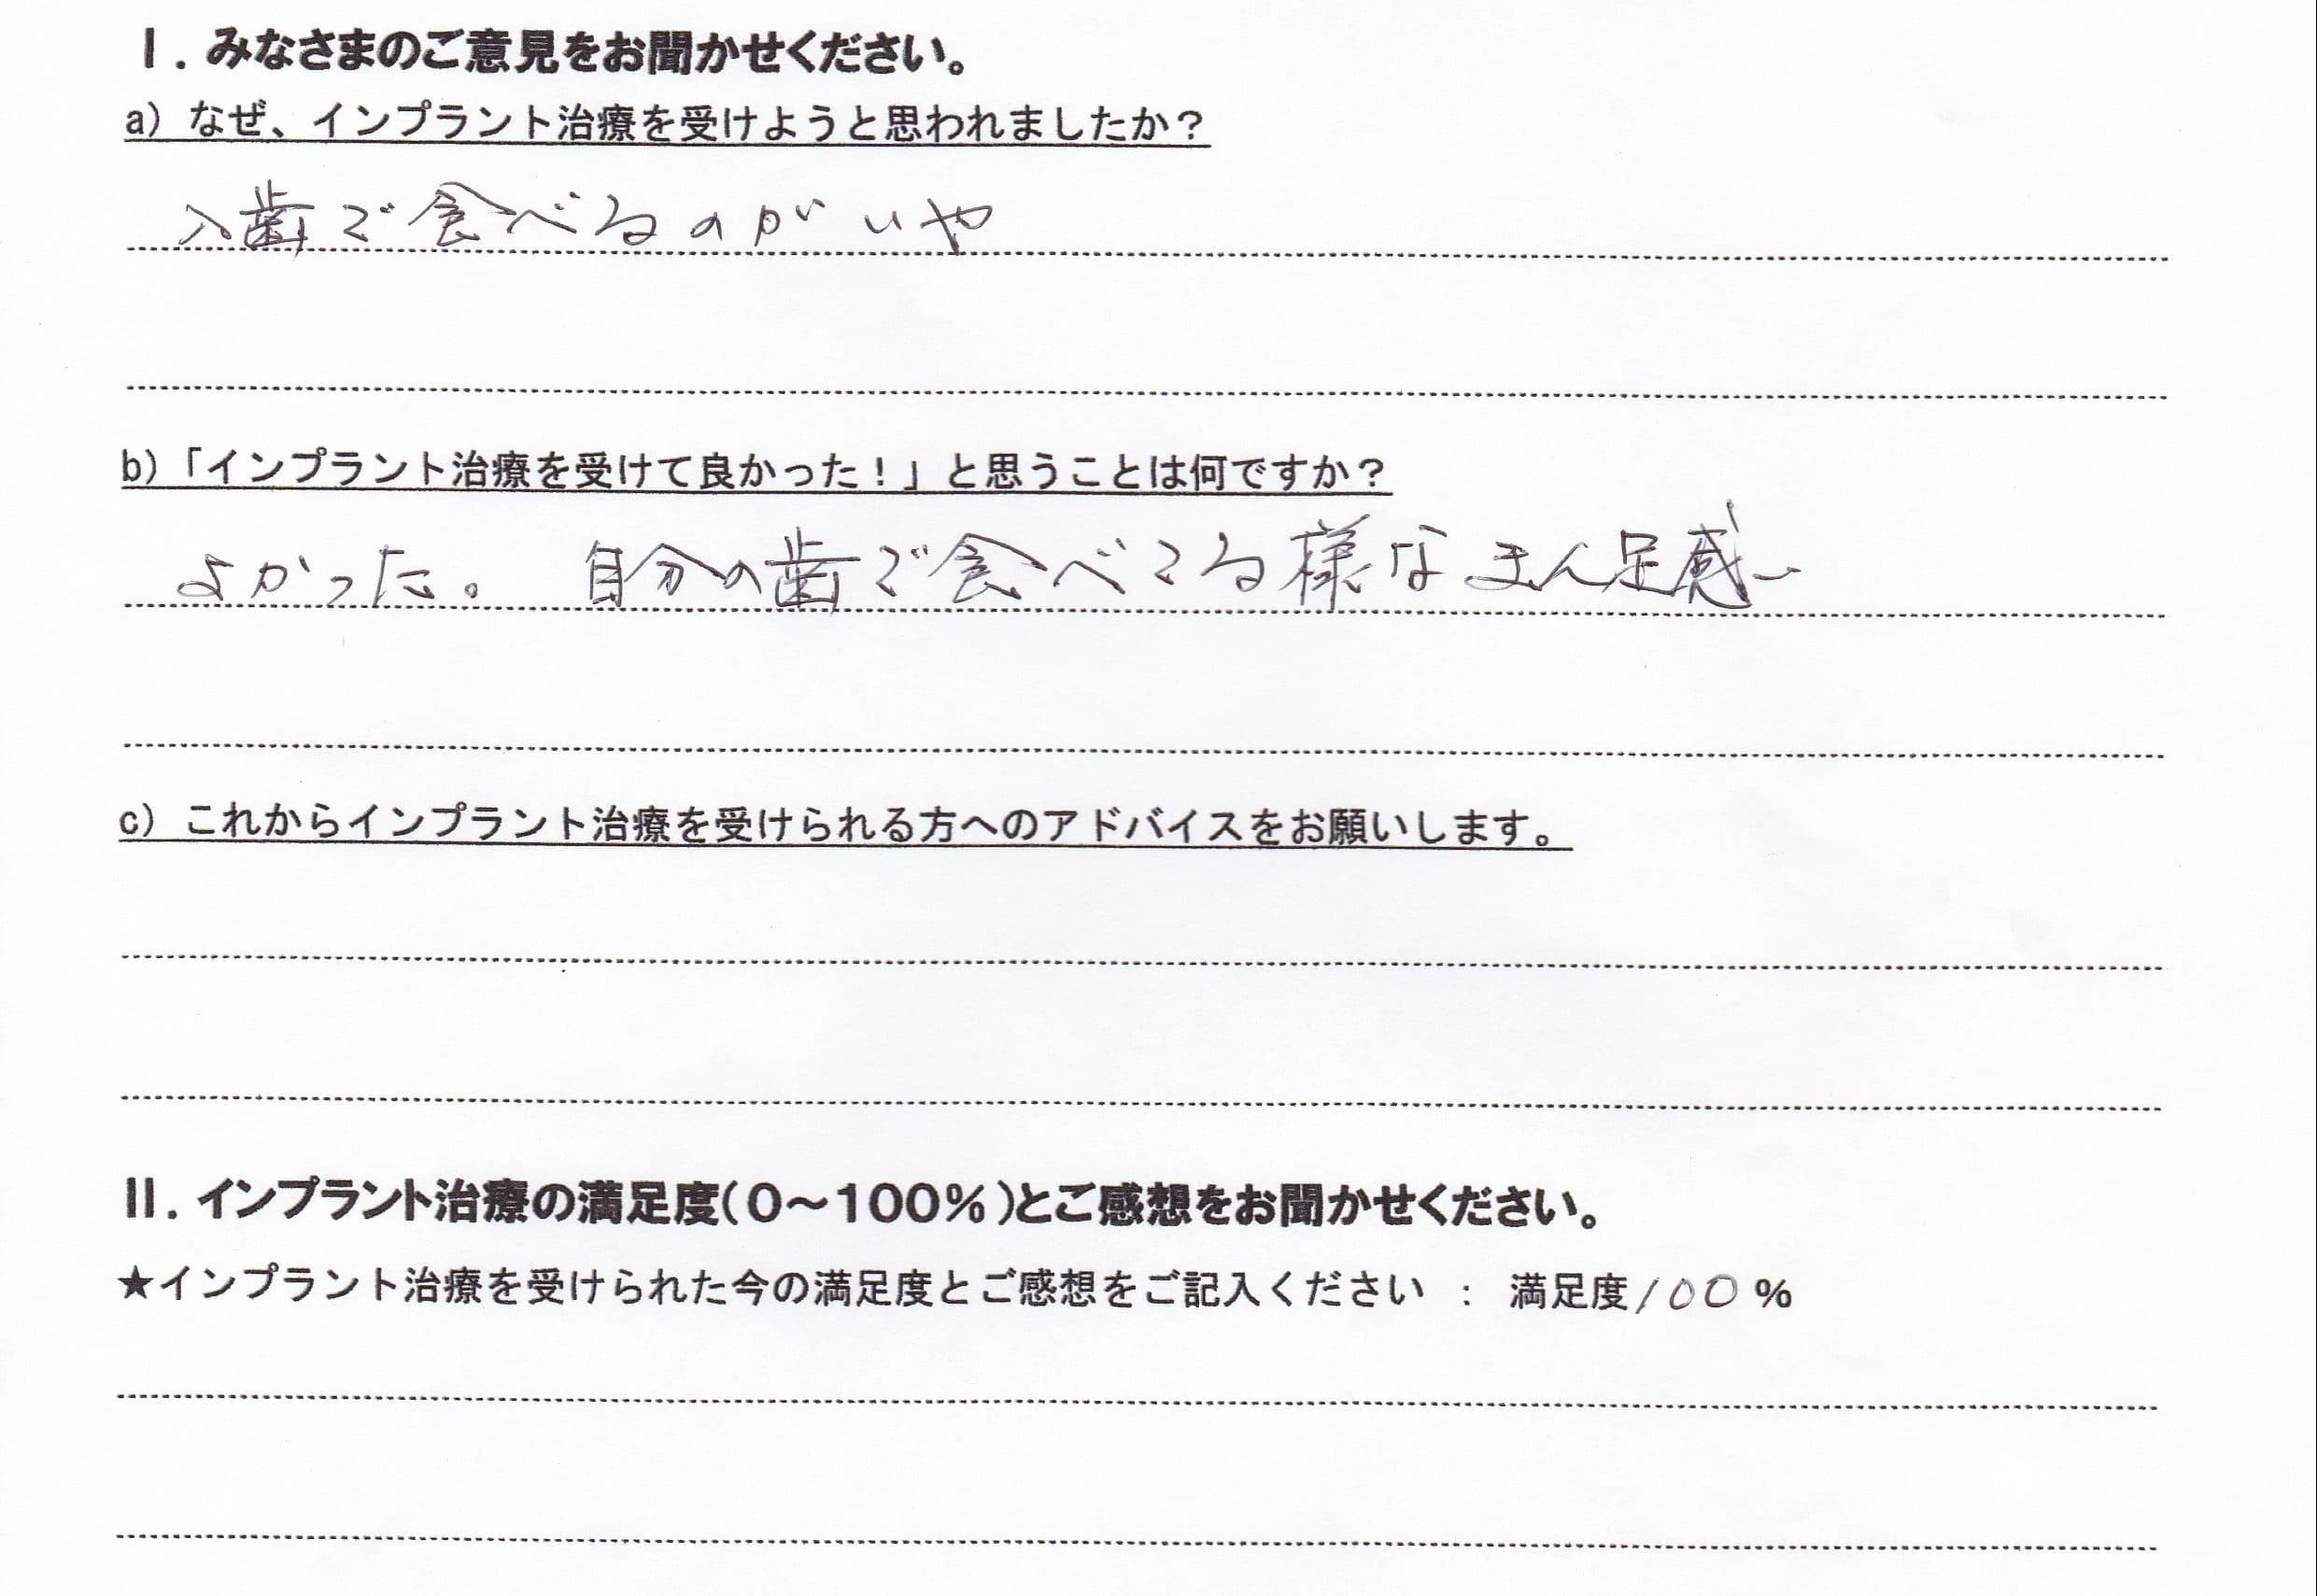 I. みなさまのご意見をお聞かせください。
a) なぜ、インプラント治療を受けようと思われましたか？
入歯で食べるのがいや
b)「インプラント治療を受けて良かった！」と思うことは何ですか？
よかった。 自分の歯で食べてる様なまん足感
c) これからインプラント治療を受けられる方へのアドバイスをお願いします。
II. インプラント治療の満足度(0～100%)とご感想をお聞かせください。
★インプラント治療を受けられた今の満足度とご感想をご記入ください ： 満足度100%